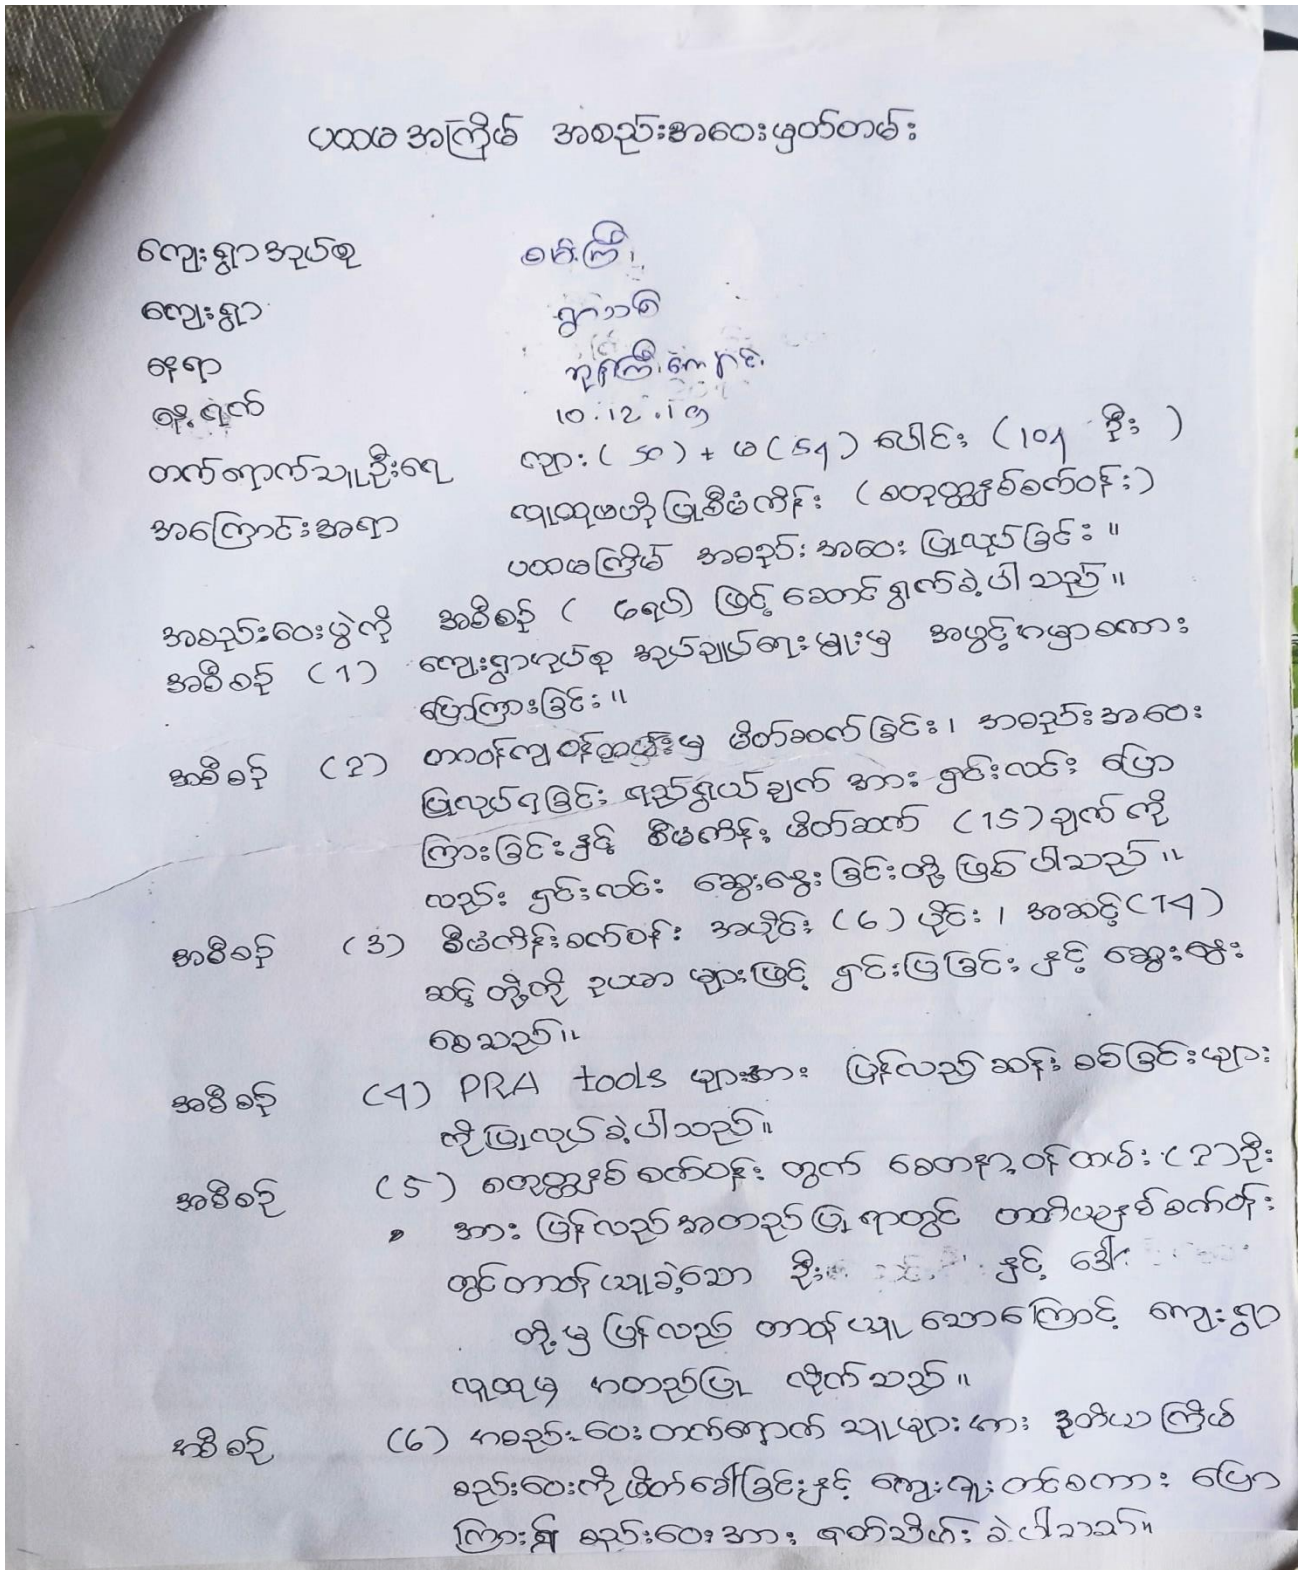 ပထမအကြိမ် အစည်းအဝေးမှတ်တမ်း
ကျေးရွာအုပ်စု စမ်းကြီး
ကျေးရွာ ရွာသစ်
နေရာ ဘုန်းကြီးကျောင်း
နေ့ရက် 10.12.19
တက်ရောက်သူဦးရေ ကျား (50) + မ (54) ပေါင်း (104 ဦး)
အကြောင်းအရာ လူထုဗဟိုပြုစီမံကိန်း (စတုတ္ထနှစ်စက်ဝန်း)
ပထမကြိမ် အစည်းအဝေး ပြုလုပ်ခြင်း။
အစည်းဝေးပွဲကို အစီစဉ် ( 6ရပ်) ဖြင့် ဆောင်ရွက်ခဲ့ပါသည်။
အစီစဉ် (1) ကျေးရွာအုပ်စု အုပ်ချုပ်ရေးမှူးမှ အဖွင့်အမှာစကား
ပြောကြားခြင်း။
အစီစဉ် (2) တာဝန်ကျဝန်ထမ်းမှ မိတ်ဆက်ခြင်း၊ အစည်းအဝေး
ပြုလုပ်ရခြင်း ရည်ရွယ်ချက် အား ရှင်းလင်း ပြော
ကြားခြင်းနှင့် စီမံကိန်း မိတ်ဆက် (15) ချက် ကို
လည်း ရှင်းလင်း ဆွေးနွေးခြင်းတို့ ဖြစ်ပါသည်။
အစီစဉ် (3) စီမံကိန်းစက်ဝန်း အပိုင်း (6) ပိုင်း၊ အဆင့် (14)
ဆင့် တို့ကို ဥပမာ များဖြင့် ရှင်းပြခြင်း နှင့် ဆွေးနွေး
စေသည်။
အစီစဉ် (4) PRA tools များအား ပြန်လည်ဆန်းစစ်ခြင်းများ
ကို ပြုလုပ်ခဲ့ပါသည်။
အစီစဉ် (5) စတုတ္ထနှစ်စက်ဝန်း တွက် စေတနာ့ဝန်ထမ်း (2) ဦး
အား ပြန်လည်အတည်ပြုရာတွင် တတိယနှစ်စက်ဝန်း
တွင်တာဝန်ယူခဲ့သော ဦး နှင့် ဒေါ်
တို့မှ ပြန်လည် တာဝန်ယူ သောကြောင့် ကျေးရွာ
လူထုမှ အတည်ပြု လိုက်သည်။
အစီစဉ် (6) အစည်းဝေးတက်ရောက် သူများအား ဒုတိယကြိမ်
စည်းဝေးကိုဖိတ်ခေါ်ခြင်းနှင့် ကျေးဇူးတင်စကား ပြော
ကြား၍ စည်းဝေးအား ရုတ်သိမ်းခဲ့ပါသည်။